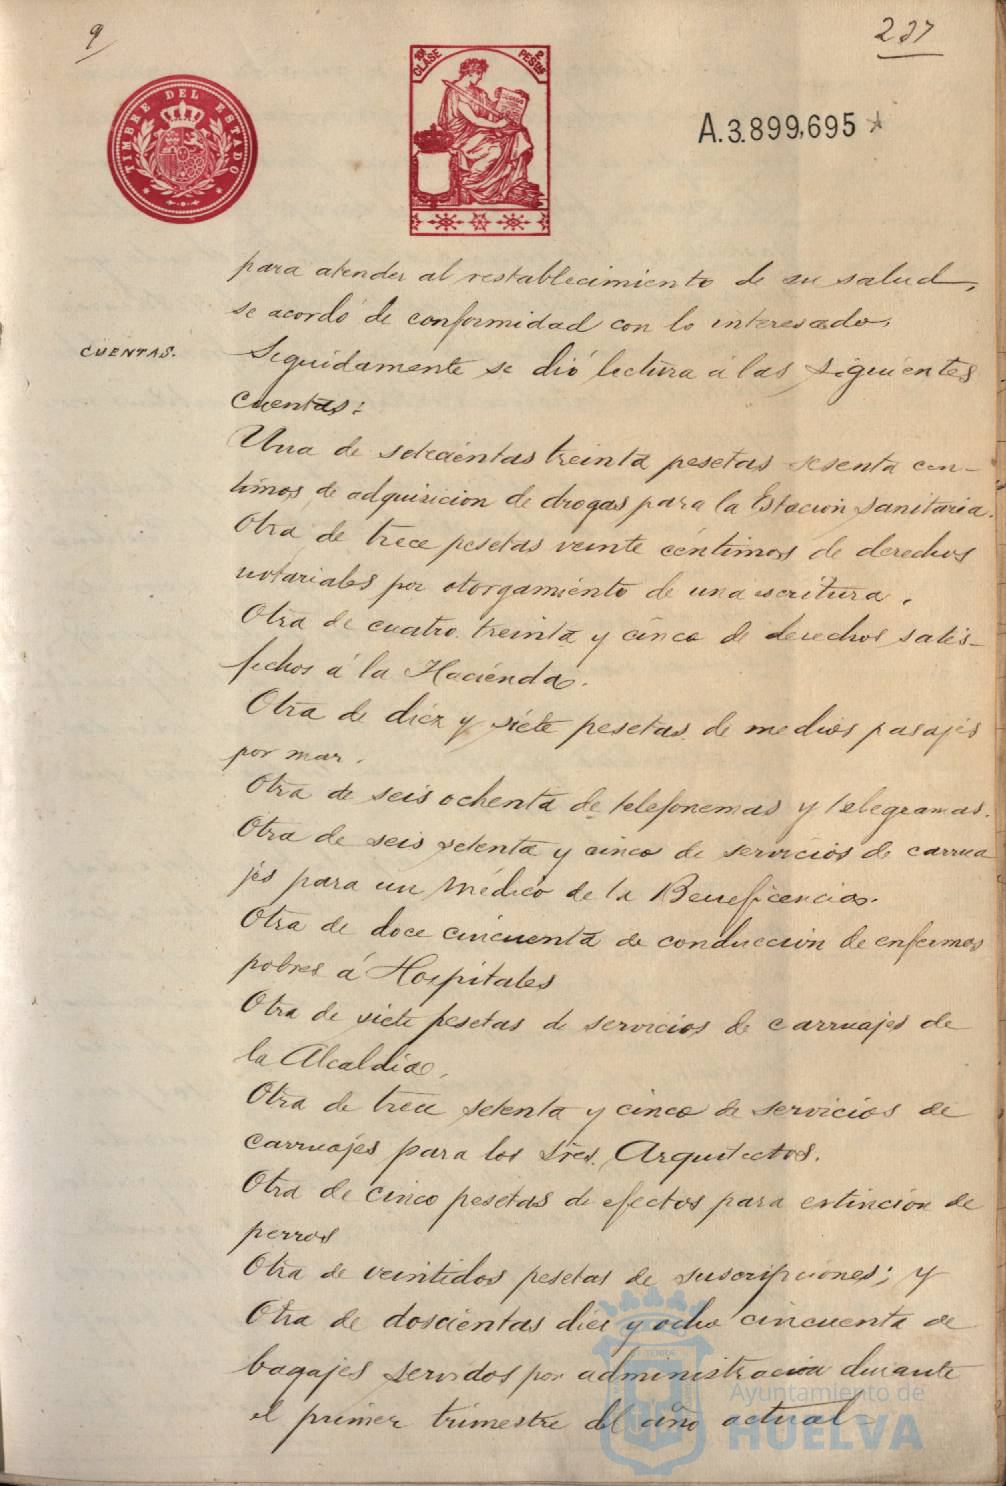 9
237
TIMBRE DEL ESTADO
10ª CLASE
2 PESTAS
A.3.899,695
para atender al restablecimiento de su salud,
se acordó de conformidad con lo interesado.
CUENTAS.
Seguidamente se dió lectura á las siguientes
cuentas:
Una de setecientas treinta pesetas sesenta cen-
timos de adquisicion de drogas para la Estacion sanitaria.
Otra de trece pesetas veinte céntimos de derechos
notariales por otorgamiento de una escritura.
Otra de cuatro treinta y cinco de derechos satis-
fechos á la Hacienda.
Otra de diez y siete pesetas de medios pasajes
por mar.
Otra de seis ochenta de telefonemas y telegramas.
Otra de seis setenta y cinco de servicios de carrua
jes para un Médico de la Beneficencia.
Otra de doce cincuenta de conduccion de enfermos
pobres á Hospitales
Otra de siete pesetas de servicios de carruajes de
la Alcaldia.
Otra de trece setenta y cinco de servicios de
carruajes para los Sres. Arquitectos.
Otra de cinco pesetas de efectos para estincion de
perros
Otra de veintidos pesetas de suscripciones; y
Otra de doscientas diez y ocho cincuenta de
bagajes servidos por administracion durante
el primer trimestre del año actual-
Ayuntamiento de
HUELVA